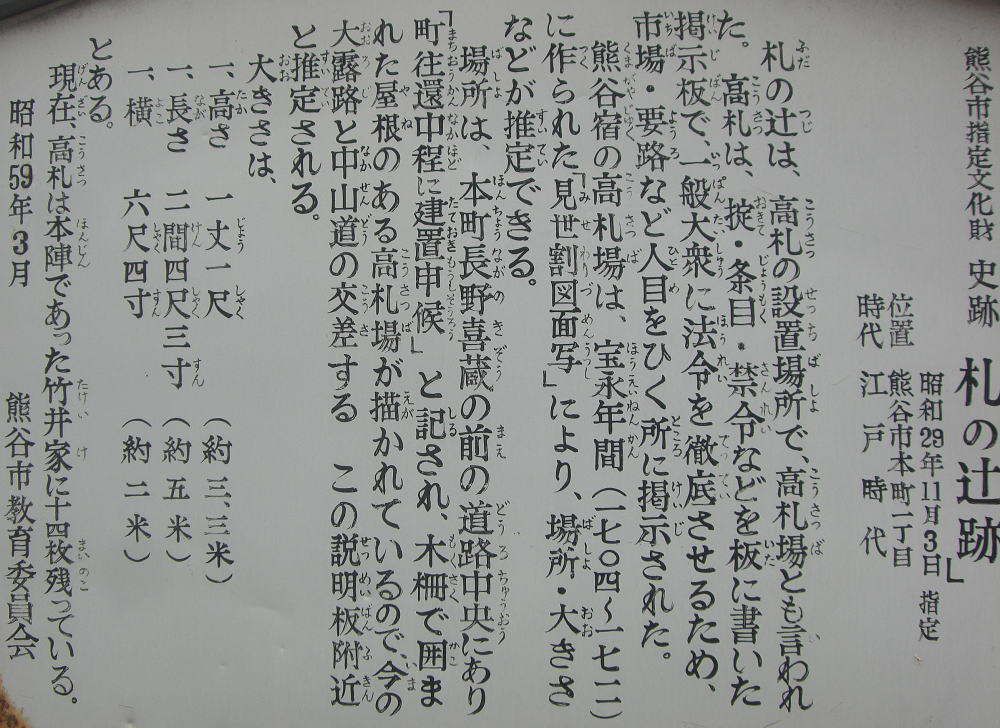 熊谷市指定文化財 史跡 札の辻跡」
昭和29年11月3日 指定
位置 熊谷市本町一丁目
時代 江戸時代
札の辻は、高札の設置場所で、高札場とも言われ
た。高札は、掟・条目・禁令などを板に書いた
掲示板で、一般大衆に法令を徹底させるため、
市場・要路など人目をひく所に掲示された。
熊谷宿の高札場は、宝永年間(一七〇四〜一七一一)
に作られた「見世割図面写」により、場所・大きさ
などが推定できる。
場所は、本町長野喜蔵の前の道路中央にあり
「町往還中程に建置申候」と記され、木柵で囲ま
れた屋根のある高札場が描かれているので、今の
大露路と中山道の交差する この説明板附近
と推定される。
大きさは、
一、高さ 一丈一尺 (約 三、三米)
一、長さ 二間四尺三寸 (約 五 米)
一、横 六尺四寸 (約 二 米)
とある。
現在、高札は本陣であった竹井家に十四枚残っている。
昭和59年3月 熊谷市教育委員会